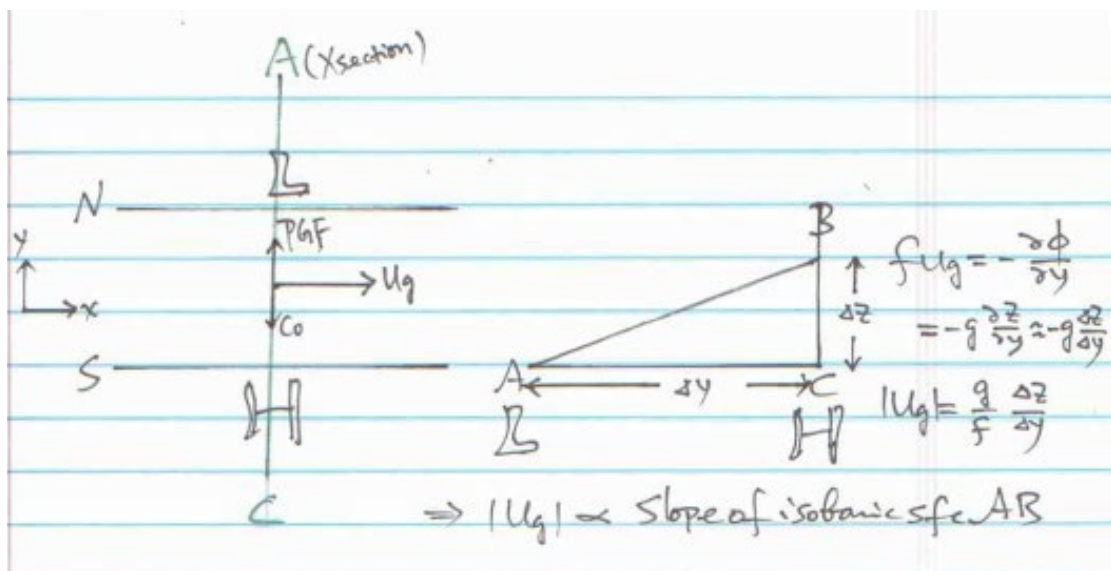 A (Xsection)
L
N
PGF
y
x
Ug
Co
S
H
C
B
ΔZ
A
Δy
C
L
H
fUg = - ∂φ/∂y
= -g ∂Z/∂y ≈ -g ΔZ/Δy
|Ug| = g/f ΔZ/Δy
⇒ |Ug| ∝ Slope of isobaric sfc AB